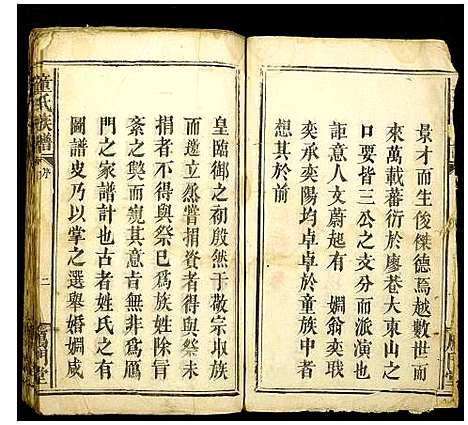 景才而生俊傑德焉越數世而
來萬載蕃衍於廖巷大東山之
口要皆三公之支分而派演也
詎意人文蔚起有 姻翁奕戢
奕承奕陽均卓卓於童族中者
想其於前
皇臨御之初殷然于敬宗収族
而遂立然嘗捐資者得與祭未
捐者不得與祭巳為族姓除脅
紊之獘而窺其意旨無非為鴈
門之家譜計也古者姓氏之有
圖譜叟乃以掌之選舉婚姻咸
童氏族譜
序
二
鴈門堂